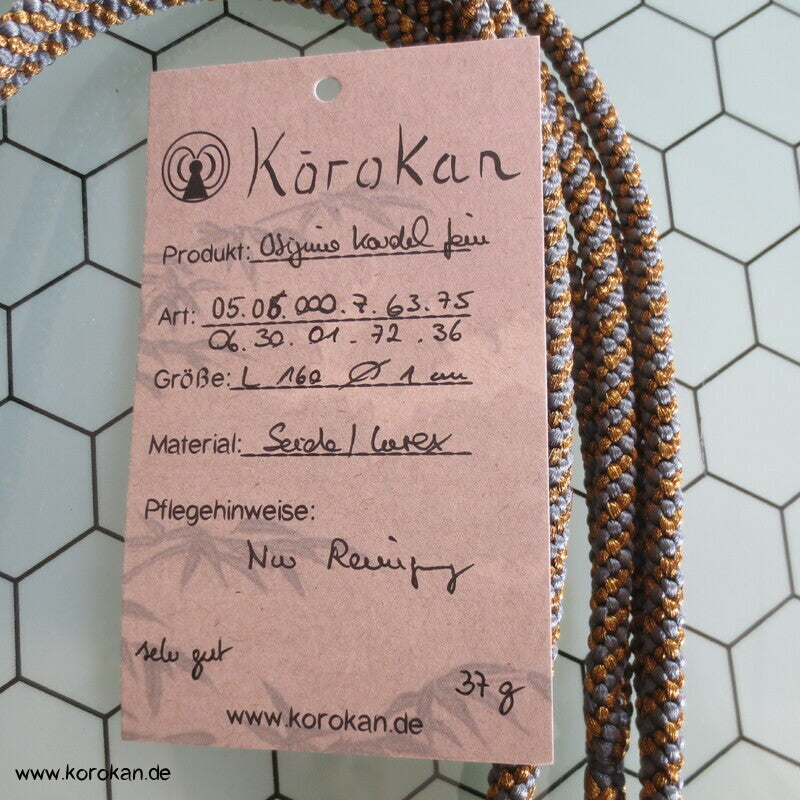 Kōrokan
Produkt: Obijime Kordel fein
Art: 05.05.000.7.63.75
06.30.01-72.36
Größe: L 160 Ø 1 cm
Material: Seide/Lurex
Pflegehinweise:
Nur Reinigung
sehr gut
37 g
www.korokan.de
www.korokan.de